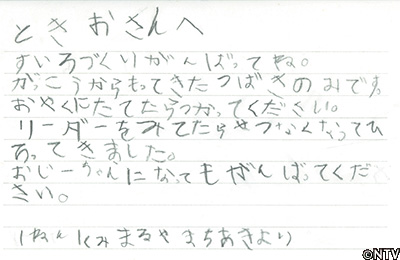 ときおさんへ
すいろづくりがんばってね。
がっこうからもってきたつばきのみです。
おやくにたてたらつかってください。
リーダーをみてたらせつなくなってひ
ろってきました。
おじーちゃんになってもがんばってくだ
さい。
1ねん1くみまるやまちあきより
©NTV